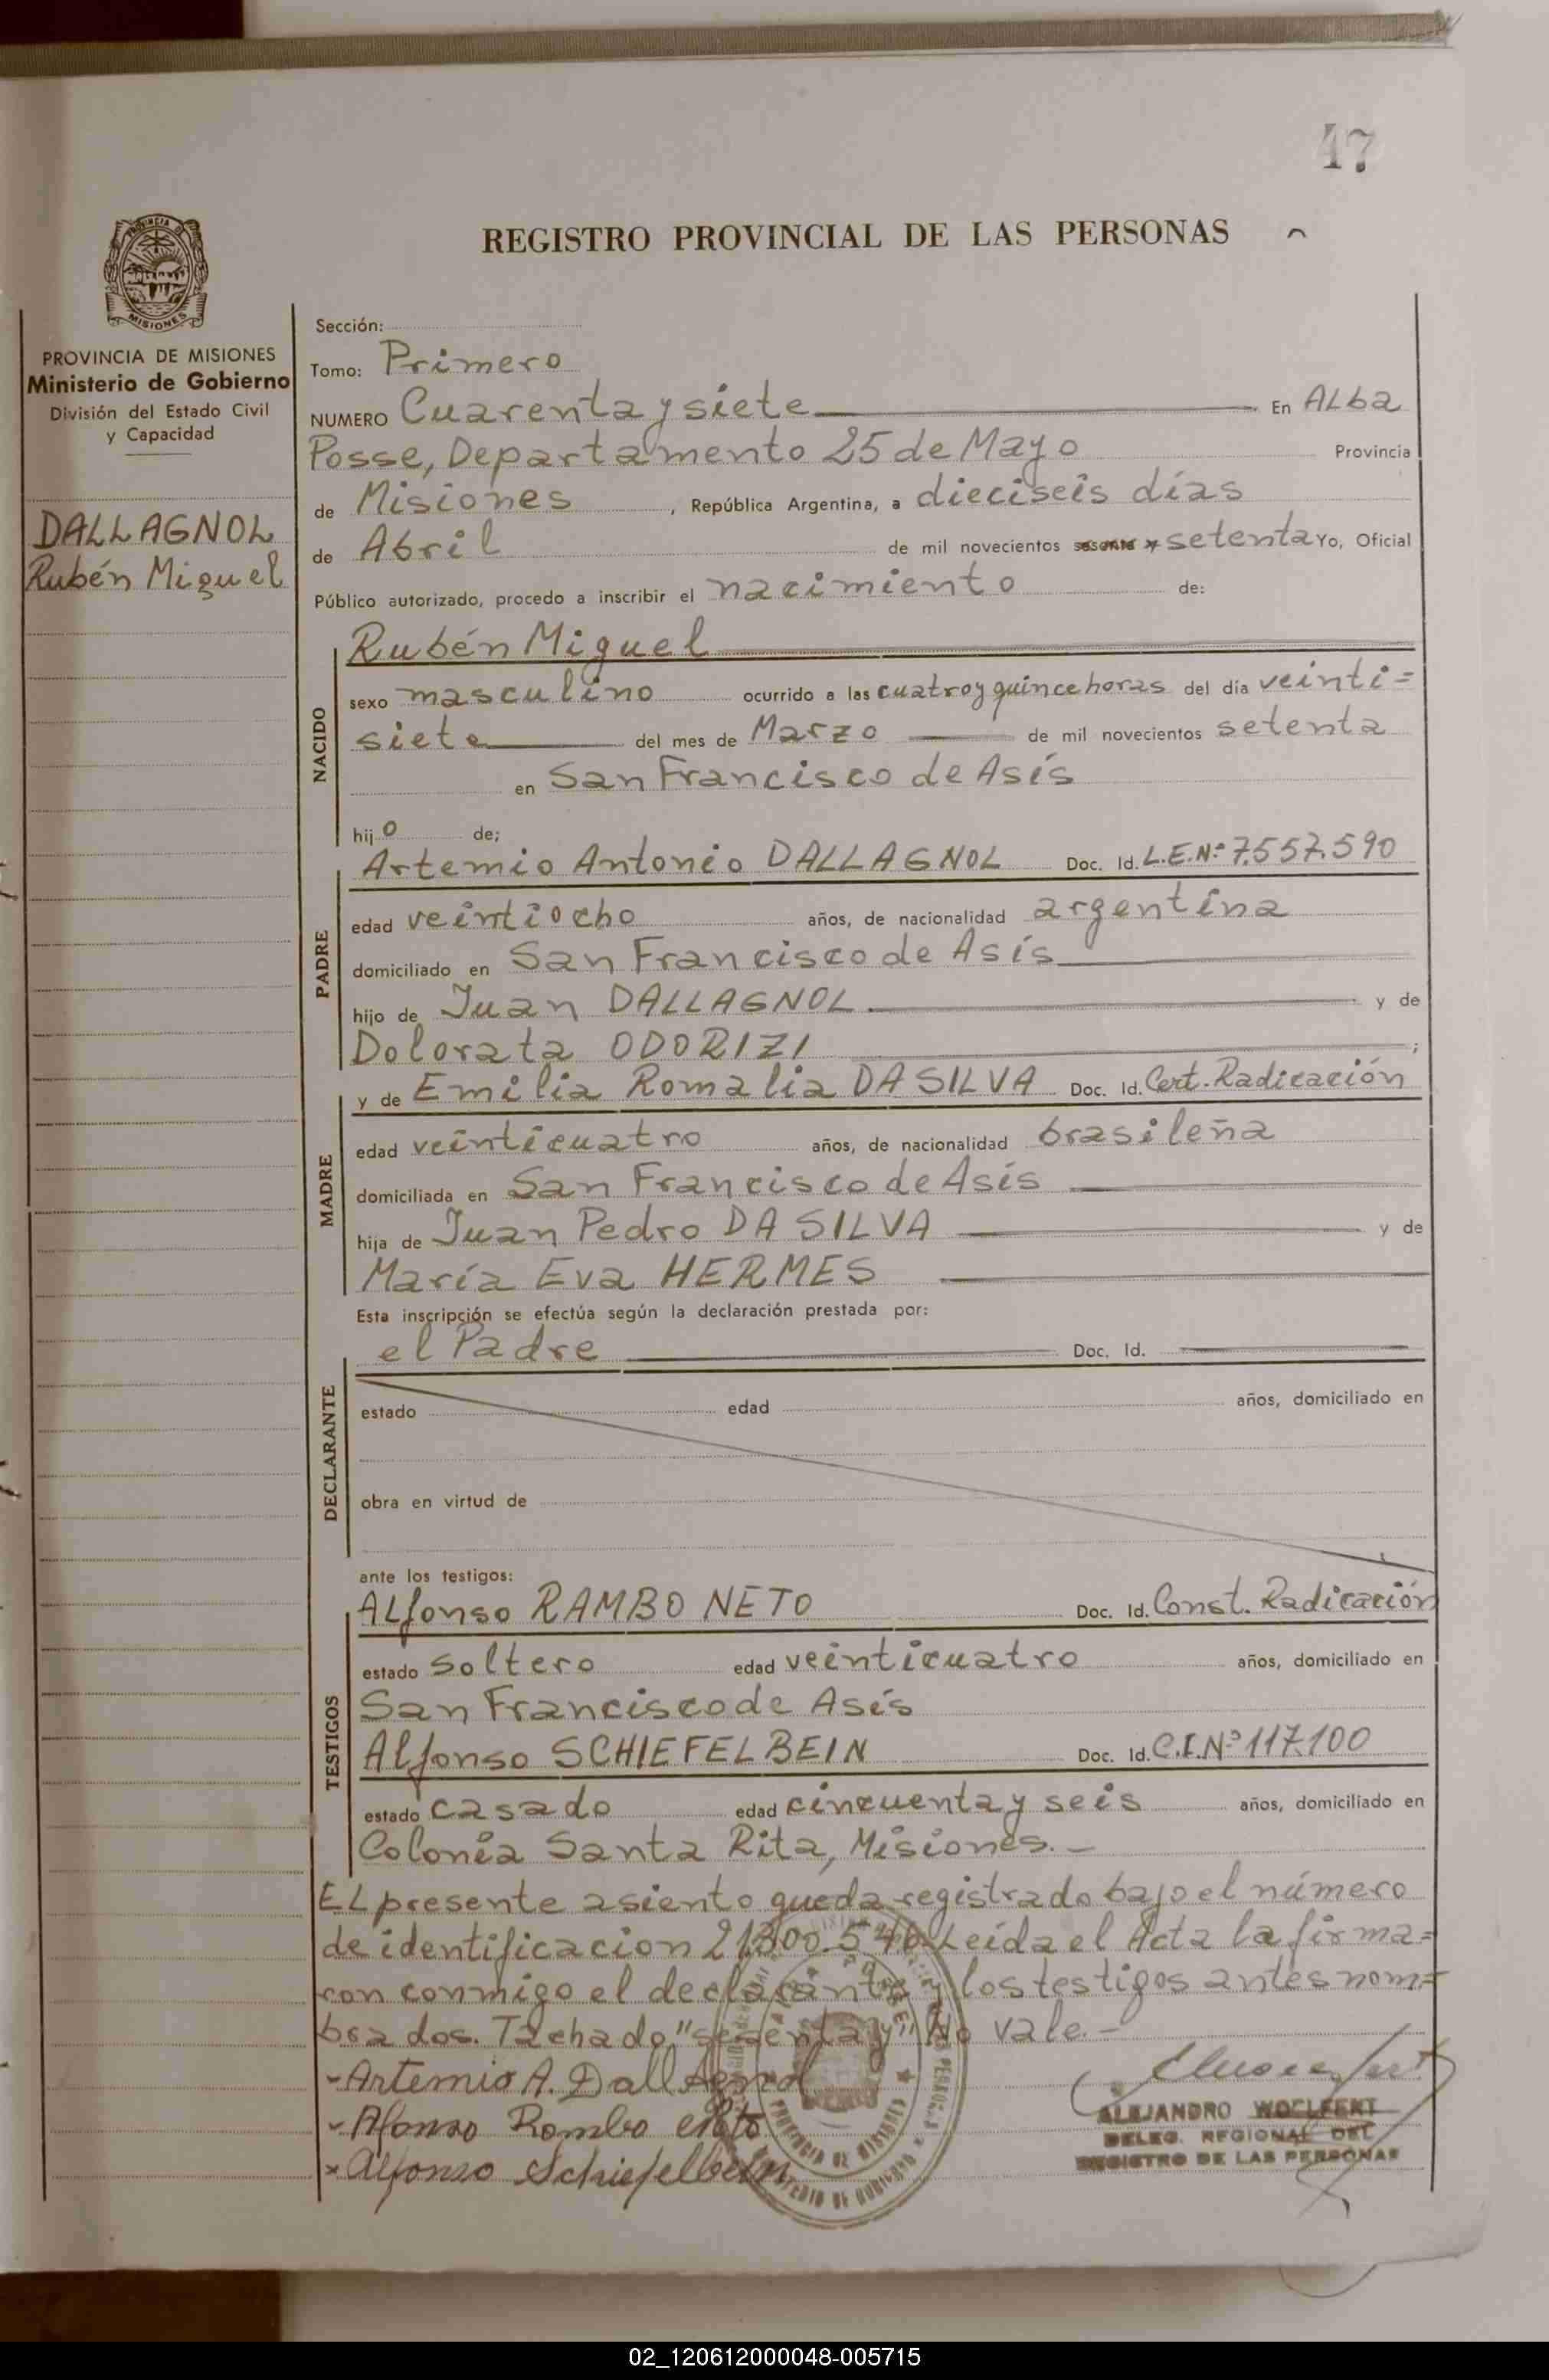 47
REGISTRO PROVINCIAL DE LAS PERSONAS
MISIONES
PROVINCIA DE MISIONES
Ministerio de Gobierno
División del Estado Civil
y Capacidad
DALLAGNOL
Rubén Miguel
Sección:
Tomo: Primero
NUMERO Cuarenta y siete En ALba
Posse, Departamento 25 de Mayo Provincia
de Misiones, República Argentina, a dieciseis días
de Abril de mil novecientos sesenta y setenta Yo, Oficial
Público autorizado, procedo a inscribir el nacimiento de:
NACIDO
Rubén Miguel
sexo masculino ocurrido a las cuatro y quince horas del día veinti=
siete del mes de Marzo de mil novecientos setenta
en San Francisco de Asís
hijo de;
PADRE
Artemio Antonio DALLAGNOL Doc. Id. L.E.Nº 7.557.590
edad veintiocho años, de nacionalidad argentina
domiciliado en San Francisco de Asís
hijo de Juan DALLAGNOL y de
Dolorata ODORIZI ;
MADRE
y de Emilia Romalia DA SILVA Doc. Id. Cert. Radicación
edad veinticuatro años, de nacionalidad brasileña
domiciliada en San Francisco de Asís
hija de Juan Pedro DA SILVA y de
María Eva HERMES
Esta inscripción se efectúa según la declaración prestada por:
DECLARANTE
el Padre Doc. Id.
estado edad años, domiciliado en
obra en virtud de
ante los testigos:
TESTIGOS
ALfonso RAMBO NETO Doc. Id. Const. Radicación
estado soltero edad veinticuatro años, domiciliado en
San Francisco de Asís
Alfonso SCHIEFELBEIN Doc. Id. C.I.Nº 117.100
estado casado edad cincuenta y seis años, domiciliado en
Colonia Santa Rita, Misiones.-
EL presente asiento queda registrado bajo el número
de identificacion 21.300.546 Leída el Acta la firma=
ron conmigo el declarante y los testigos antes nom=
brados. Tachado "sesenta y" No vale.-
-Artemio A. Dall Agnol
- Alfonso Rambo Neto
x Alfonso Schiefelbein
ALEJANDRO WOCLFERT
DELEG. REGIONAL DEL
REGISTRO DE LAS PERSONAS
PROVINCIA DE MISIONES
02_120612000048-005715